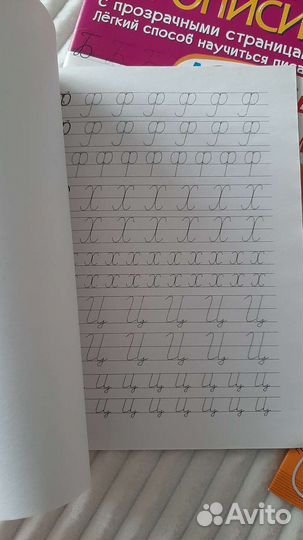 ОПИСИ
с прозрачными страница
Лёгкий способ научиться писа
Б
Ф Ф Ф Ф Ф Ф
Ф Ф Ф Ф Ф Ф
ф ф ф ф ф ф ф ф ф
Х Х Х Х Х Х
Х Х Х Х Х Х
х х х х х х х х х х
х х х х х х х х х х
Ц Ц Ц Ц Ц
Ц Ц Ц Ц Ц
ц ц ц ц ц ц ц
ц ц ц ц ц ц ц
Avito